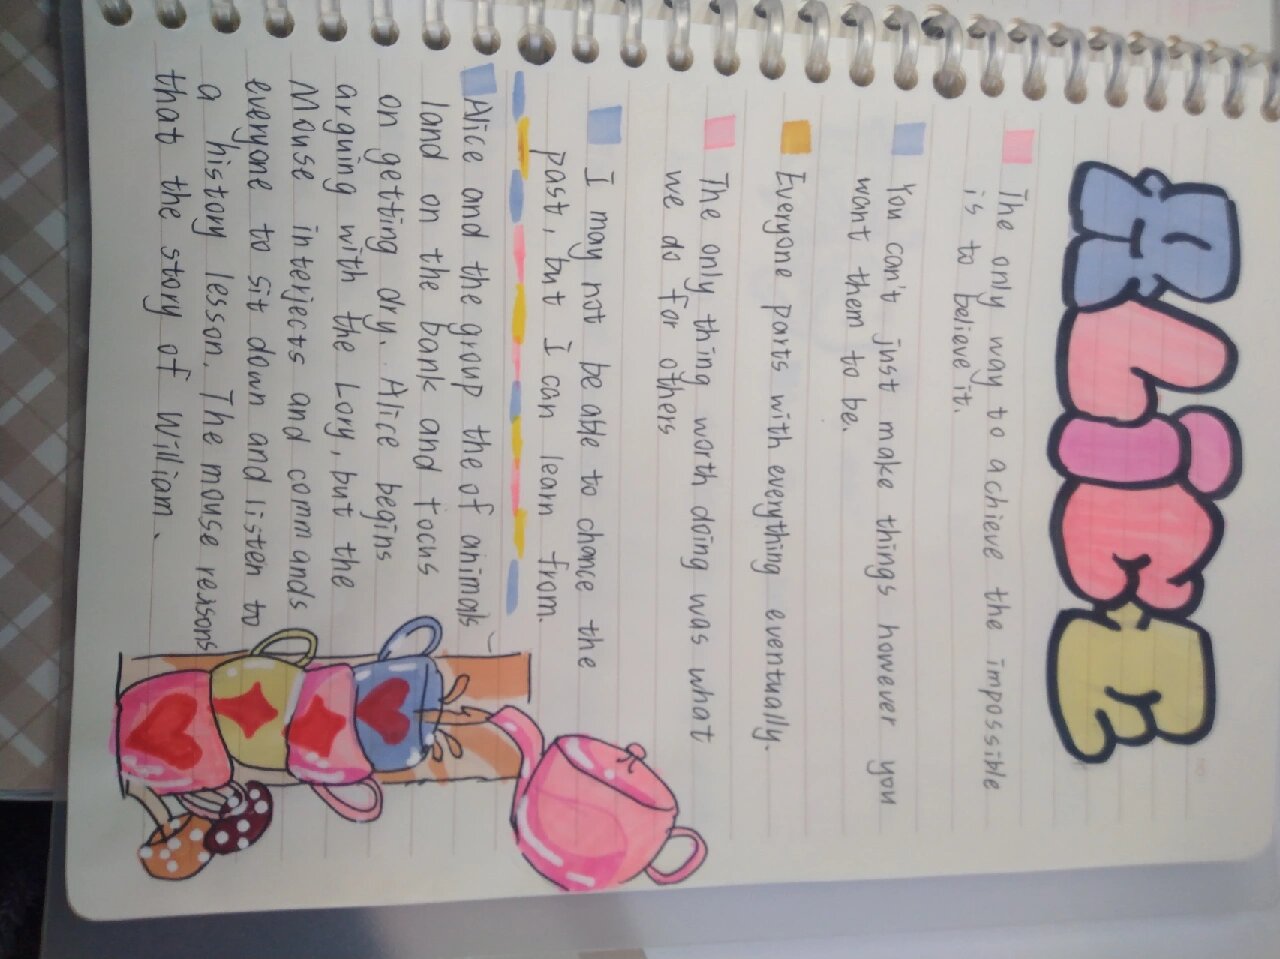 ALiCE
The only way to achieve the impossible
is to believe it.
You can't just make things however you
want them to be.
Everyone parts with everything eventually.
The only thing worth doing was what
we do for others
I may not be able to chance the
past, but I can learn from.
Alice and the group the of animals
land on the bank and focus
on getting dry. Alice begins
arguing with the Lory, but the
Mouse interjects and commands
everyone to sit down and listen to
a history lesson. The mouse reasons
that the story of William.